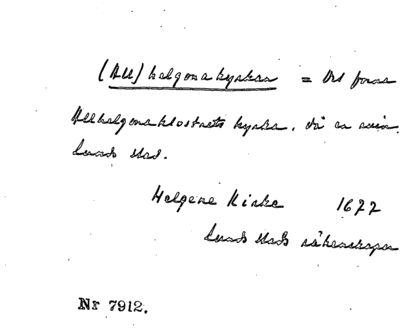 (All) helgonakyrkan = Det forna
Allhelgonaklostrets kyrka. 
Lunds stad.
Helgene Kirke 1677
Lunds stads
Nr 7912.